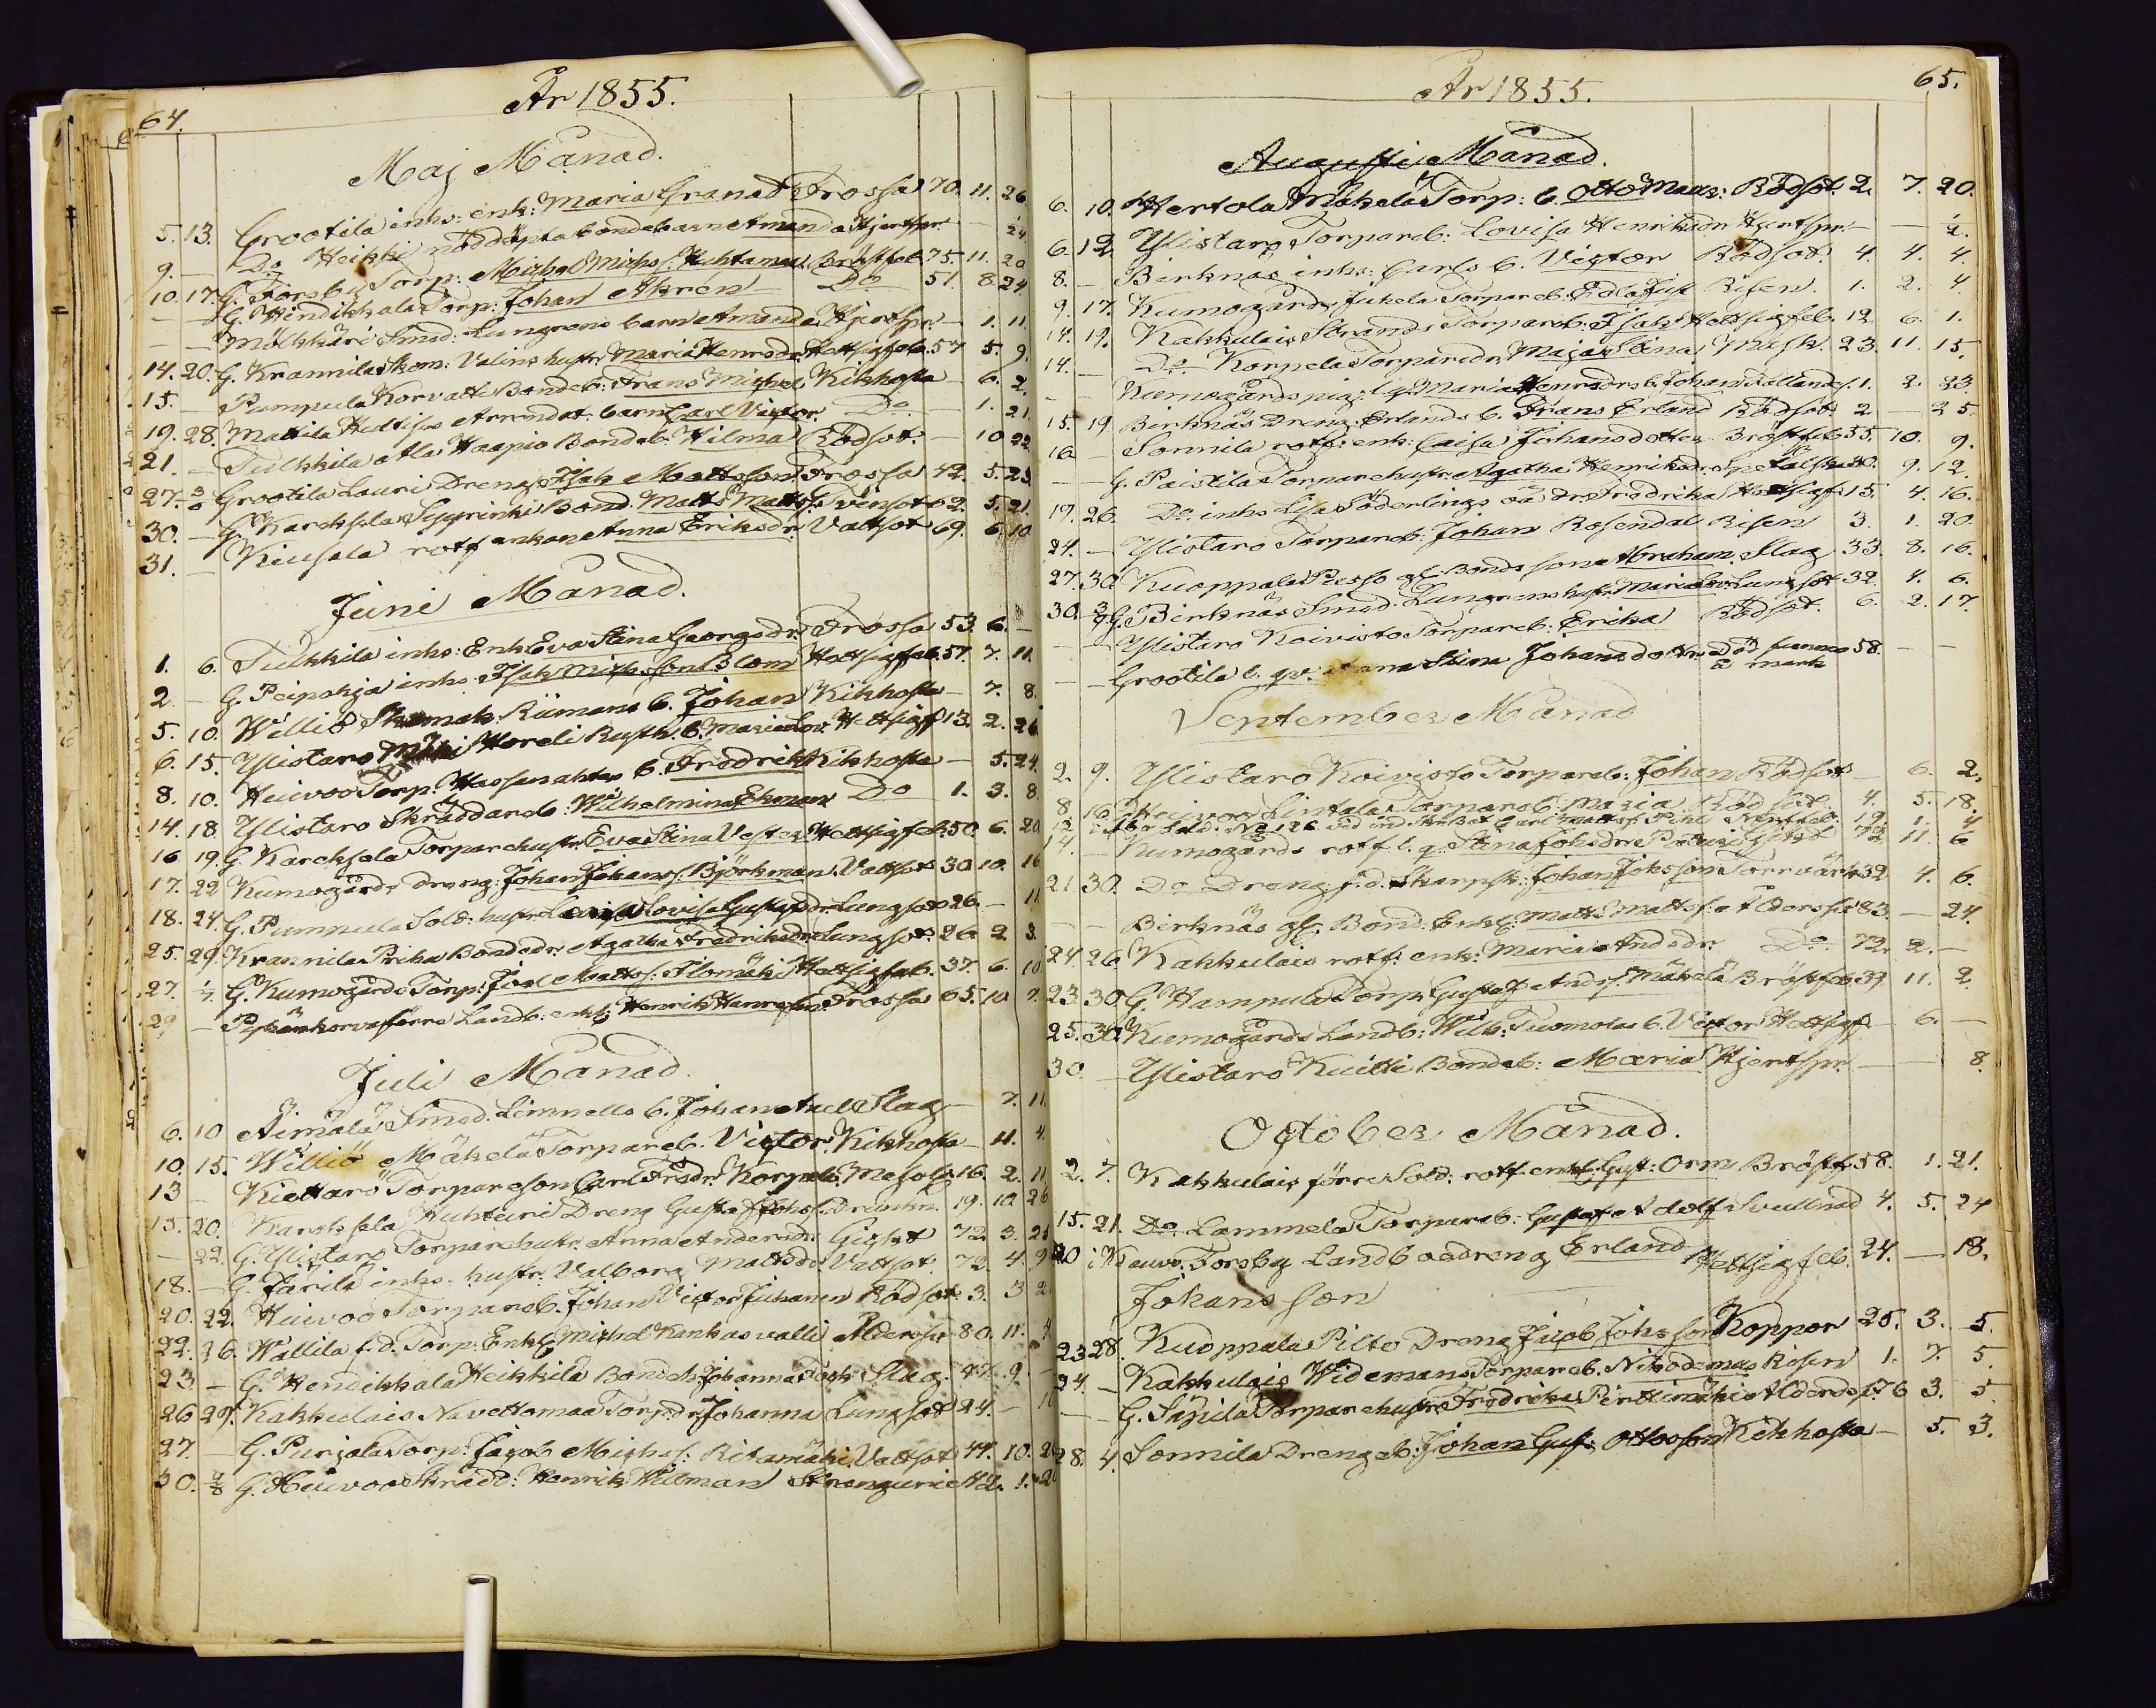 64.
År 1855.
Maj Månad.
5. 13. Grootila inhs: enk: Maria Granat Frossa 70. 11. 26
9. — Do Heikki nöddöpta bondebarn Amanda Hjertspr. — — 24.
10. 17. G. Forsby Torp: Michel Michs: Huhtamaa Bröstfeb. 75 11. 20
— — G. Hendikkala Torp: Johan Åkrèn Do 51. 8. 24.
— — Mölkkäri Smed: Lungrens barn Amanda Hjertspr. — 1. 11.
14. 20. G. Krannila Skom: Valins hustr: Maria Henrsdr. Hettsigfeb. 57 5. 9.
15. — Pumpula Korvatti Bondeb: Frans Michel Kikhosta — 6. 2.
19. 28. Mattila Arrendat. barn Carl Victor Do. — 1. 21.
21. — Tulkkila Ala Haapio Bondeb. Hilma Rödsot: — 10 22.
27. Grootila Lauri Dreng Isak Mattsson Frossa 42. 5. 23.
30. — G. Karcksela Bond. Matts Mattss: Tvinsot 62. 5. 21.
31. — Kiusala rotf enkan Anna Eriksdr. Vattsot 69. 6. 10
Juni Månad.
1. 6. Tulkkila inhs: Enk: Eva Stina Georgsdr. Frossa 53. 6. —
2. — G. Peipohja inhs. Isak Michsson Blom Hettsigfeb. 57. 7. 11.
5. 10. Williö Skomak. Riimans b. Johan Kikhosta — 7. 8.
6. 15. Ylistaro Rusth. b. Maria Lov. Hettsigf. 13. 2. 26
8. 10. Huivoo Torp. b. Fredrik Kikhosta — 5. 24.
14. 18. Ylistaro Skräddareb. Wilhelmina Ekman Do 1. 3. 8.
16 19. G. Karcksela Torparehustr. Eva Stina Hettsigfeb. 50. 6. 20
17. 22 Kumogårds dreng: Johan Johans: Björkman Vattsot 30 10. 16
18. 24. G. Pumpula Sold: hustr. Lovisa Gustafsdr. Lungsot 26. — 11.
25. 29. Krannila Piika Bondedr. Agatha Fredriksdr. Lungsot. 26. 2. 3.
27. 1/7. G. Kumogårds Torp: Joel Mattss: Hettsigfeb. 37. 6. 10.
29 — förre Landb: enkl: Henrik Henrsson Frossa 65. 10 7.
Juli Månad.
6. 10 Äimälä Smed. Limnells b. Johan Axel Slag — 7. 11.
10. 15. Williö Mäkelä Torpareb. Victor Kikhosta — 11. 4.
13 — Kiettarö Torpareson Carl Fredr. Korpela Messl. 16. 2. 11.
15. 20. Karcksela Huhteiri Dreng Gustaf Johss. Drunkn. 19. 10. 26
— 22. G. Ylistaro Torparehustr. Anna Andersdr. Gigt 72. 3. 23
18. — G. Järilä inhs. hustr: Valborg Mattsdr. Vattsot. 72. 4. 9
20. 22. Huivoo Torpareb. Johan Victor Juhanen Rödsot. 3. 3. 2
22. 26. Wällilä f.d. Torp: Enkl Michel Kankasvalli Ålderdsv. 80. 11. 4
23. — G. Hendikkala Heikkilä Bondeh. Johanna Slag. 47. 9.
26 29. Kakkulais Navettomaa Torp:dr. Johanna Lungsot 24. —
27. — G. Purjala Torp: Jacob Michss: Ritamäki Vattsot 44. 10. 2
30. G. Huivoo Skrädd: Henrik Wilman Strangurie 42. 1. 2
År 1855.
65.
Augusti Månad.
6. 10. Hertola Mäkelä Torp: b. Otto Maur: Rödsot. 2. 7. 20.
6. 12. Ylistaro Torpareb: Lovisa Henriksdr Hjertspr. — — 2.
8. — Birknäs inhs: Carls b. Victor Rödsot. 4. 4. 4.
9. 17. Kumogårds Jukela Torpareb. Edla Just Risen. 1. 2. 4.
14. 19. Kakkulais Strands Torpareb: Isak Hettsigfeb. 12 6. 1.
14. — Do Korpela Torparedr. Maja Stina Mask. 23. 11. 15.
— Kumogårds pig: Maria Henrsdrs b. Johan 1. 2. 23
15. 19 Birknäs Dreng: Erlands b. Frans Erland Rödsot 2. — 25.
16 — Sonnila rotf: enk: Caisa Johansdotter Bröstfeb 55. 10. 9.
— — G. Paistila Torparehustr. Agatha Henriksdr. 40. 9. 12.
19. 26. Do. inhs Lisa Söderlings oä dr. Fredrika Hettsigf. 15. 4. 16.
24. — Ylistaro Torpareb: Johan Rosendal Risen 3. 1. 20
27. 30. Kuoppala Piesso gl: Bonde sone Abraham Slag 33. 8. 16.
30. G. Birknäs Smed. Lungrens hustr. Maria Lungsot 32 4. 6.
— — Ylistaro Koivisto Torpareb: Erika Rödsot. 6. 2. 17.
— — Grootila Anna Stina Johansdotter Död funnen å mark 58. — —
September Månad
2. 9. Ylistaro Koivisto Torpareb: Johan Rödsot — 6. 2.
8 16. Huivoo Lintala Torpareb. Maria Rödsot. 4. 5. 18.
12 Sold: No 126 vid ind. Carl Mattss. 19. 1. 4
14. — Kumogårds rotf l. q. Stina Johsdr. 72 11. 6
21. 30. Do Dreng f.d. Skarpsk: Johan Johsson Torrvärk 32 4. 6.
— — Birknäs gl. Bond. Enkl: Matts Mattss: Åldersv: 83. — 24.
24. 26. Kakkulais rotf: enk: Maria Andsdr: Do. 72. 2. —
23. 30. G. Hampula Torp: Gustaf Andrs. Mäkelä Bröstfeb 39 11. 2.
25. 30. Kumogårds Landb: Wilh: Tuomolas b. Victor Hettsigf. — 6. —
30. — Ylistaro Kuitti Bondeb: Maria Hjertspr. — — 8.
October Månad.
2. 7. Kakkulais förre Sold: rotf. enkl. Gust: Orm Bröstf. 58. 1. 21.
15. 21. Do. Lammela Torpareb: Gustaf Adolf Svullnad 4. 5. 24
20 Forsby Landb oädreng Erland Hettsigfeb. 24. — 18.
Johansson
23 28. Kuoppala Pilto Dreng Jacob Johsson Koppor 25. 3. 5.
24. — Kakkulais Widemans Torpareb. Nikodemus Risen 1. 7. 5.
— — G. Torparehustr. Fredrika Perttimäki Ålderds. 76 3. 5
28. 4. Sonnila Drengeb: Johan Gust: Ottosson Kikhosta — 5. 3.